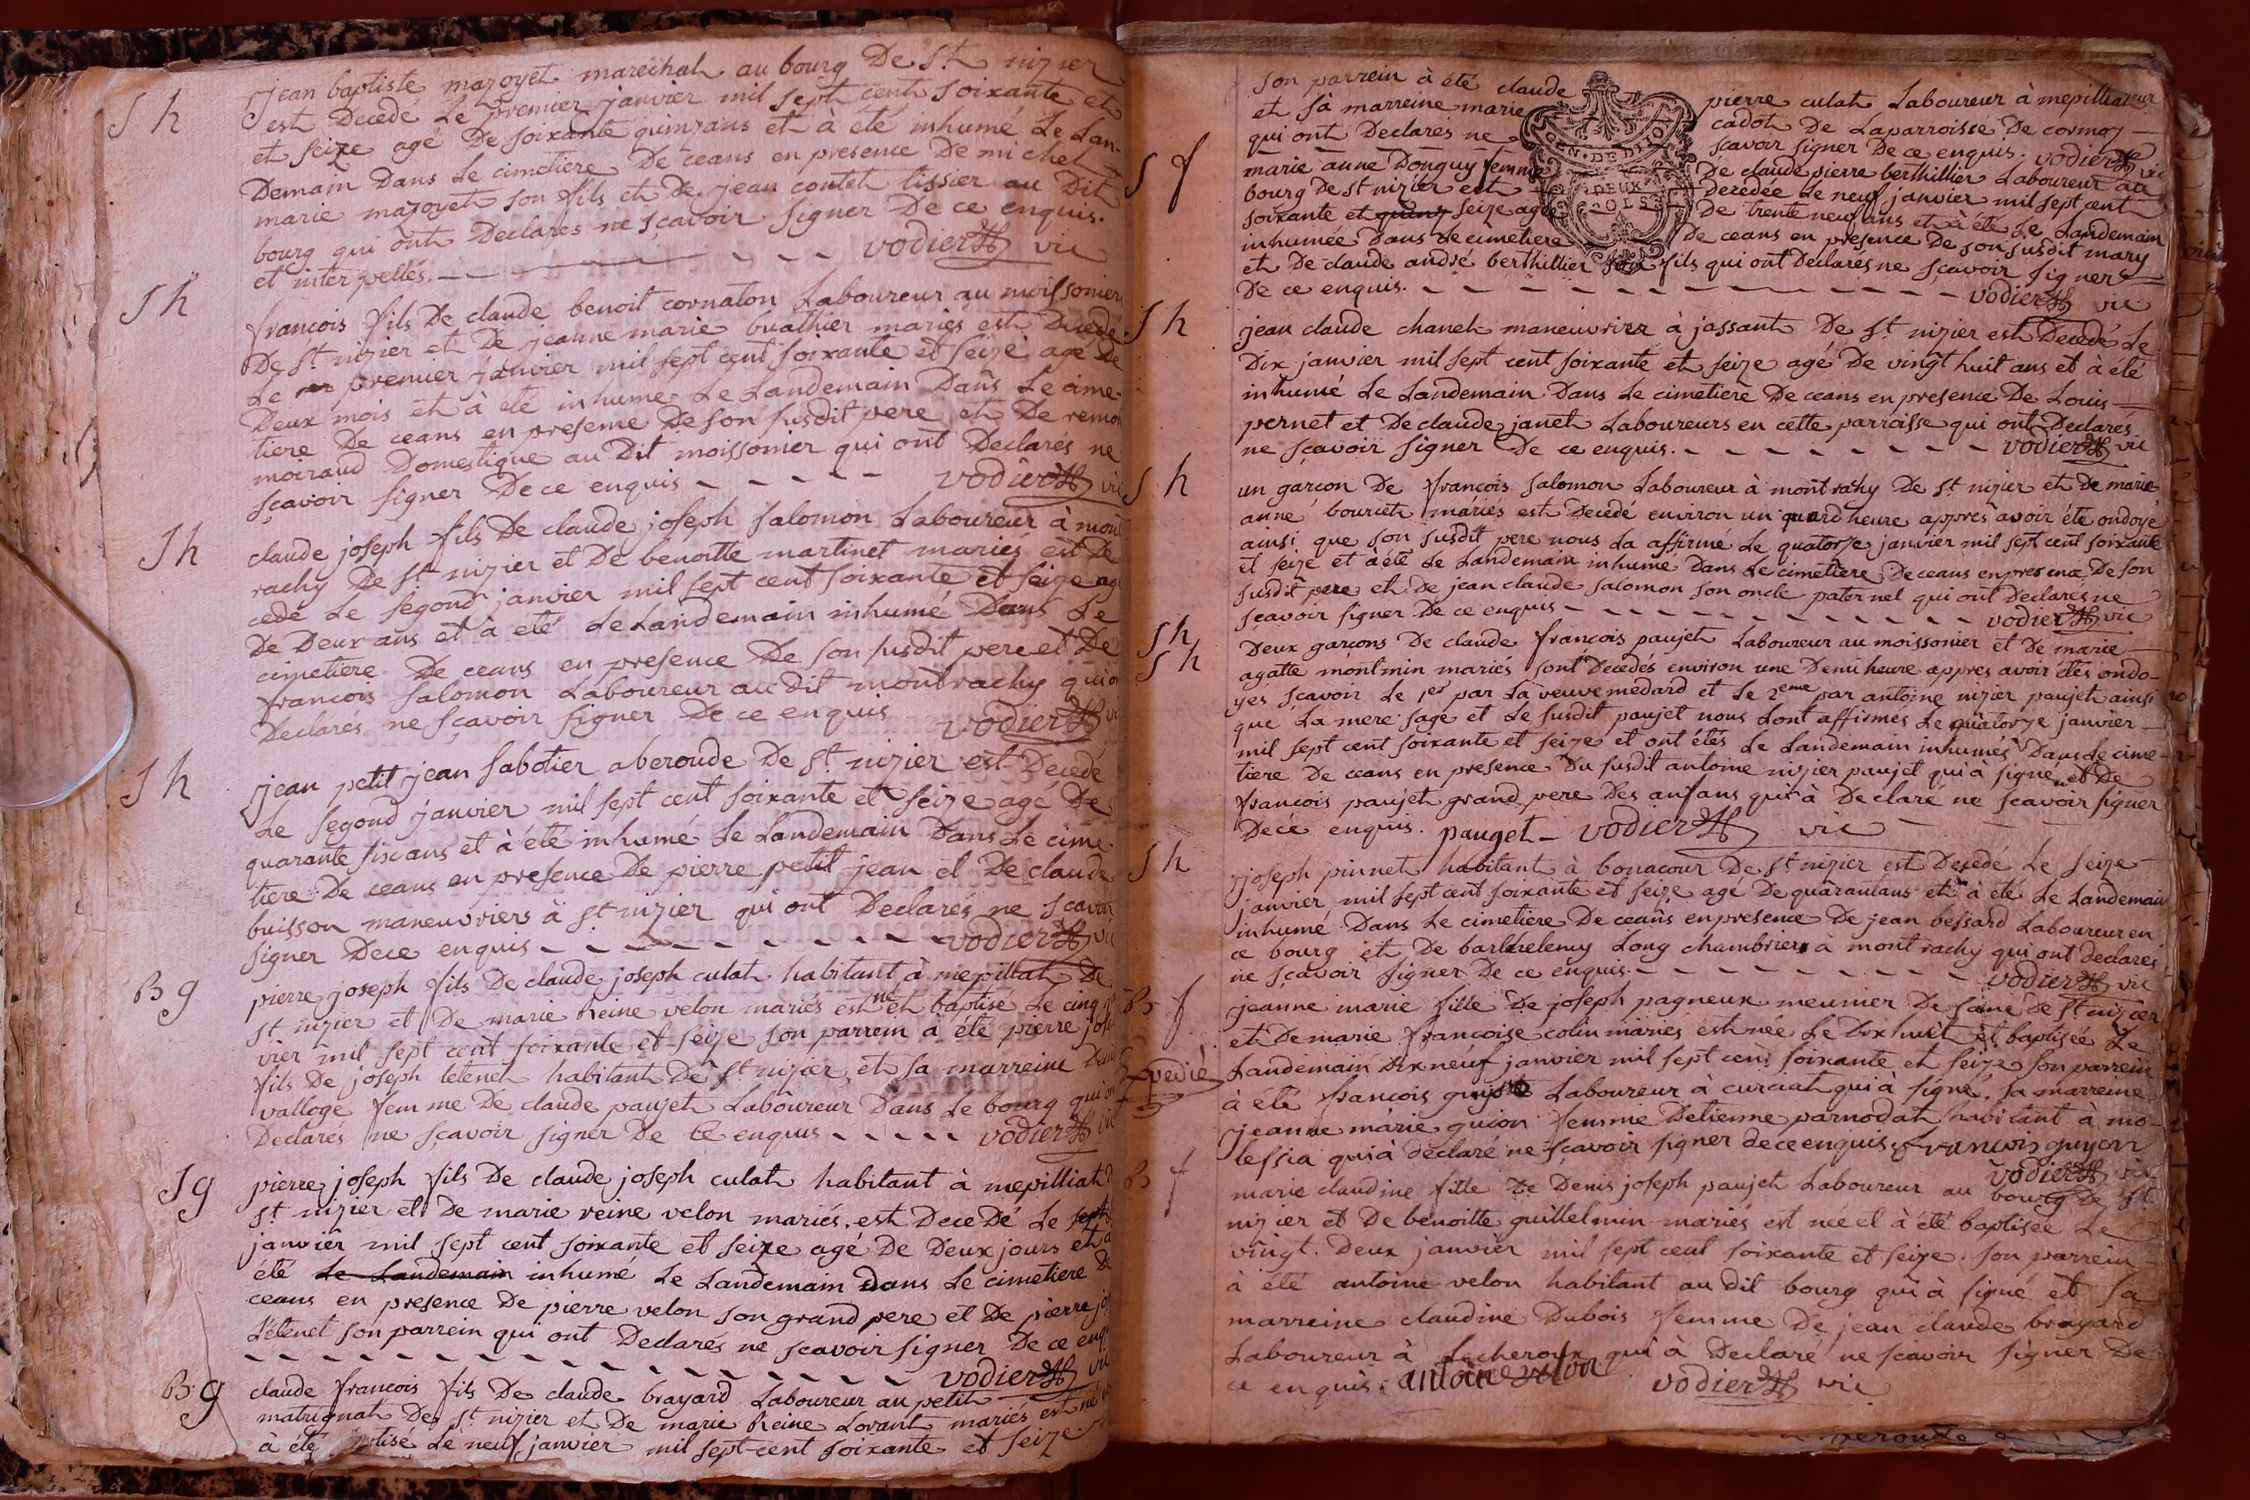 S h
jean baptiste mazoyet marechal au bourg De St nizier
est Decedé Le premier janvier mil sept cent soixante et
et seize agé De soixante quinzans et à eté inhumé Le Lan-
Demain Dans Le cimetiere De ceans en presence De michel
marie mazoyet son fils et De jean contet tissier au Dit
bourg qui ont Declarés ne sçavoir signer De ce enquis.
et interpellés. vodier vic
S h
francois fils De claude benoit cornaton Laboureur au moissonier
De St nizier et De jeanne marie buathier mariés est Decedé
Le premier janvier mil sept cent soixante et seize agé De
Deux mois et à eté inhumé Le Landemain Dans Le cime-
tiere De ceans en presence De son susdit pere et De remon
moiraud Domestique au Dit moissonier qui ont Declarés ne
sçavoir signer De ce enquis - - - - - vodier vic
S h
claude joseph fils De claude joseph salomon Laboureur à mont
rachy De St nizier et De benoitte martinet mariés est De
cedé Le segond janvier mil sept cent soixante et seize agé
De Deux ans et à eté Le Landemain inhumé Dans Le
cimetiere De ceans en presence De son susdit pere et De
francois salomon Laboureur au dit montrachy qui on
Declarés ne sçavoir signer De ce enquis vodier vic
S h
jean petit jean sabotier aberoude De St nizier est Decedé
Le segond janvier mil sept cent soixante et seize agé De
quarante six ans et à été inhumé Le Landemain Dans Le cime-
tiere De ceans en presence De pierre petit jean et De claude
buisson maneuvriers à St nizier qui ont Declarés ne scavoir
signer De ce enquis - - - - - - - - - vodier vic
B g
pierre joseph fils De claude joseph culat habitant à mepillat De
St nizier et De marie Reine velon mariés est né et baptisé Le cinq jan
vier mil sept cent soixante et seize son parrein à eté pierre jose
fils De joseph letenet habitant De St nizier, et sa marreine Deni
valloge femme De claude paujet Laboureur Dans Le bourg qui on
Declarés ne scavoir signer De ce enquis - - - - - vodier vic
S g
pierre joseph fils De claude joseph culat habitant à mepilliat D
St nizier et De marie reine velon mariés. est Decedé Le sept
janvier mil sept cent soixante et seize agé De Deux jours et à
été Le Landemain inhumé Le Landemain Dans Le cimetiere De
ceans en presence De pierre velon son grand pere et De pierre jo
Létenet son parrein qui ont Declarés ne scavoir signer De ce enqu
- - - - - - - - - - - - - - vodier vic
B g
claude francois fils De claude brayard Laboureur au petit
matrignat De St nizier et De marie Reine Lorant mariés est né
à été ptisé Le neuf janvier mil sept cent soixante et seize.
son parrein à été claude pierre culat Laboureur à mepilliat
et sà marreine marie cadot De Laparroisse De cormoz
qui ont Declarés ne sçavoir signer De ce enquis. vodier vic
GEN. DE DIJON
DEUX SOLS
S f
marie anne Donguy femme De claude pierre berthillier Laboureur au
bourg De st nizier est Decedée Le neuf janvier mil sept cent
soixante et quinz seize agée De trente neuf ans et à été Le Landemain
inhumée Dans Le cimetiere De ceans en presence De son susdit mary
et De claude andré berthillier son fils qui ont Declarés ne sçavoir signer
De ce enquis. - - - - - - - - - - - vodier vic
S h
jean claude chanel maneuvrier à jassant De St nizier est Decedé Le
Dix janvier mil sept cent soixante et seize agé De vingt huit ans et à été
inhumé Le Landemain Dans Le cimetiere De ceans en presence De Louis
pernet et De claude janet Laboureurs en cette parroisse qui ont Declarés
ne sçavoir signer De ce enquis. - - - - - - - - vodier vic
S h
un garcon De francois salomon Laboureur à montrachy De St nizier et De marie
anne bouriet mariés est Decedé environ un quard heure appres avoir été ondoyé
ainsi que son susdit pere nous La affirmé Le quatorze janvier mil sept cent soixante
et seize et à été Le Landemain inhumé Dans Le cimetiere De ceans en presence De son
susdit pere et De jean claude salomon son oncle paternel qui ont Declarés ne
sçavoir signer De ce enquis - - - - - - - - - - vodier vic
S h
S h
Deux garcons De claude francois paujet Laboureur au moissonier et De marie
agatte montmin mariés sont Decedés environ une Demi heure appres avoir étés ondo-
yes scavoir Le 1er par La veuve medard et Le 2eme par antoine nizier paujet ainsi
que La mere sage et Le susdit paujet nous Lont affirmés Le quatorze janvier
mil sept cent soixante et seize et ont étés Le Landemain inhumés Dans Le cime-
tiere De ceans en presence Du susdit antoine nizier paujet qui à signé et De
francois paujet grand pere Des anfans qui à Declaré ne scavoir signer
De ce enquis. pauget - vodier vic
S h
joseph pinnet habitant à bonacour De St nizier est Decedé Le seize
janvier mil sept cent soixante et seize agé De quarantans et à été Le Landemain
inhumé Dans Le cimetiere De ceans en presence De jean bessard Laboureur en
ce bourg et De barthelemy Long chambrier à montrachy qui ont declarés
ne sçavoir signer De ce enquis. - - - - - - - - - - vodier vic
B f
jeanne marie fille De joseph pagneux meunier De fame De St nizier
et De marie francoise colin mariés est née Le Dix huit et baptisée Le
Landemain Dix neuf janvier mil sept cent soixante et seize son parrein
à été francois guyon Laboureur à curciat qui à signé, sa marreine
jeanne marie guion femme Detienne parnodat habitant à mo-
lessia qui à declaré ne scavoir signer de ce enquis. francois guyon
vodier vic
B f
marie claudine fille De Denis joseph paujet Laboureur au bourg De St
nizier et De benoitte guillelmin mariés est née et à été baptisée Le
vingt. Deux janvier mil sept cent soixante et seize. son parrein
à été antoine velon habitant au dit bourg qui à signé et sa
marreine claudine Dubois femme De jean claude brayard
Laboureur à Lucheroux qui à Declaré ne scavoir signer De
ce enquis. antoine velon vodier vic